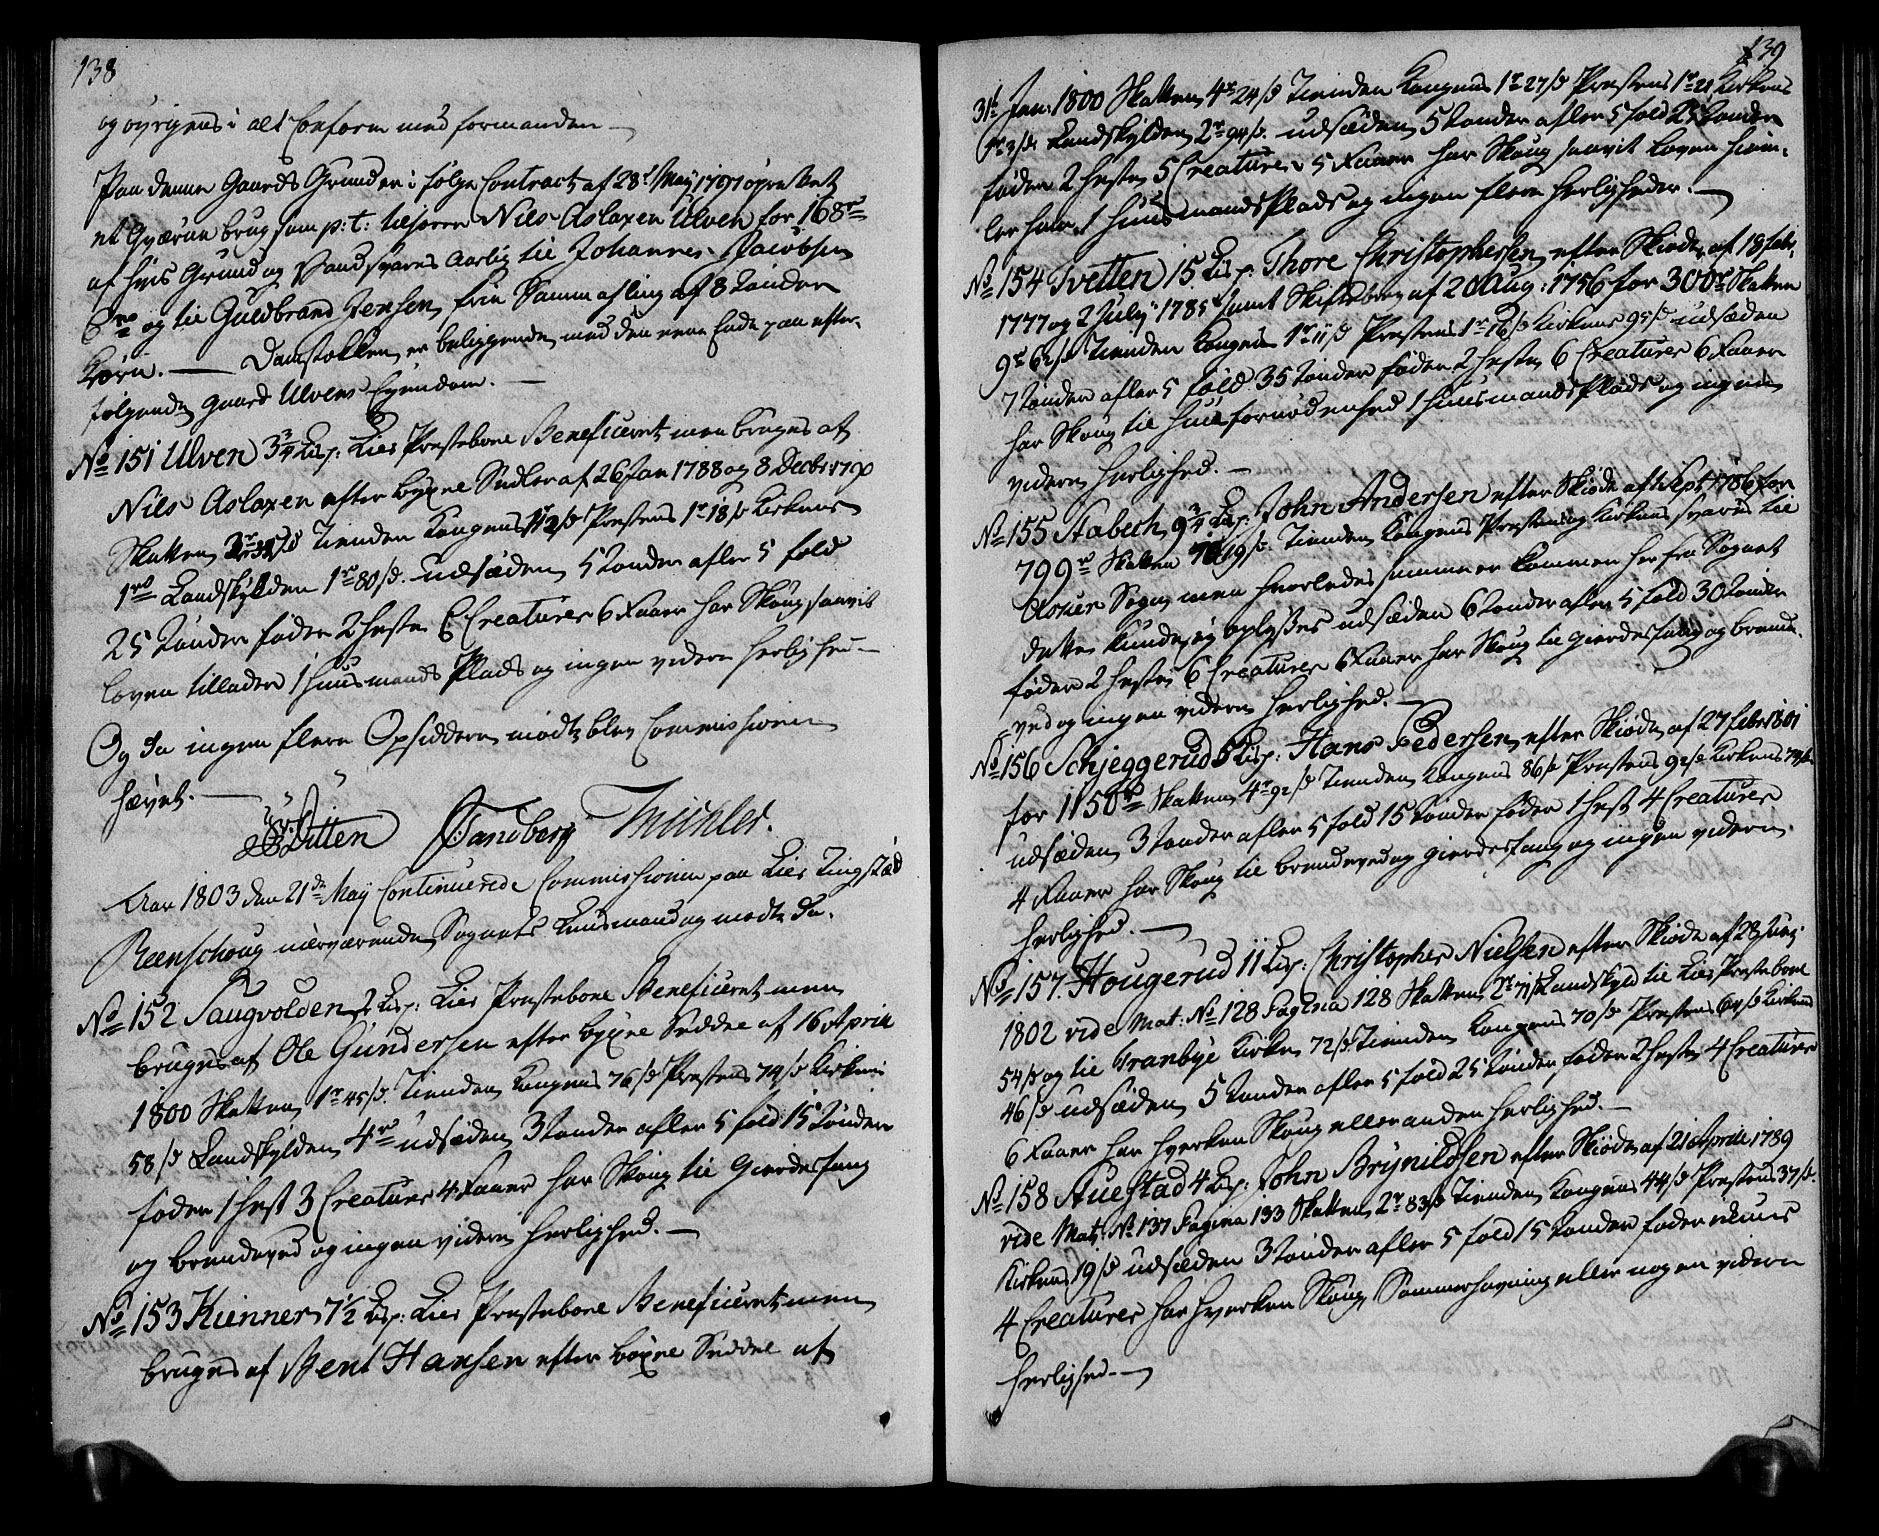 138
og øvrigens i alt Conform med formanden —
Paa denne Gaards Grund er i følge Contract af 28de May 1797 oprettet
et Qværne brug som p: t: tilhører Nils Aslaxen Ulven for 168 rd
af hvis Grund og Vand svares Aarlig til Johannes Jacobsen
6 rd og til Guldbrand Jensen frie Sammafling af 8 Tønder
Korn. — Damstokken er beliggende med den eene Ende paa efter-
følgende Gaard Ulvens Eyendom. —
No 151 Ulven 3 3/4 Lisp: Lier Præstebole Beneficeret men bruges af
Nils Aslaxen efter bøxel Sedler af 26 Jan 1788 og 8 Decbr 1790
Skatten Tienden Kongens Præstens 1 r 18 s Kirkens
1 rd Landskylden 1 r 80 s. udsæden 5 Tønder afler 5 fold
25 Tønder føder 2 Heste 6 Creaturer 6 Faaer har Skoug saavit
Loven tillader 1 Huusmands Plads og ingen videre Herlighed —
Og da ingen flere Opsiddere mødte blev Commissionen
hævet. —
Ditten Tandberg Michlet.
Aar 1803 den 21de May Continuerede Commissionen paa Lier Tingstæd
Reenschoug nærværende Sognets Lensmand og mødte da.
No 152 Saugvolden 2 Lisp: Lier Præstebole Beneficeret men
bruges af Ole Gundersen efter bøxel Seddel af 16 April
1800 Skatten 1 r 45 s. Tienden Kongens 76 s Præstens 74 s Kirkens
58 s Landskylden 4 rd udsæden 3 Tønder afler 5 fold 15 Tønder
føder 1 Hest 3 Creaturer 4 Faaer har Skoug til Gierdesfang
og brændeved og ingen videre Herlighed. —
No 153 Kienner 7 1/2 Lisp: Lier Præstebole Beneficeret men
bruges af Bent Hansen efter bøxel Seddel af
139
31te Jan: 1800 Skatten 4 r 24 s Tienden Kongens 1 r 27 s Præstens 1 r 21 Kirkens
1 r 3 s Landskylden 2 r 94 s. udsæden 5 Tønder afler 5 fold 25 Tønder
føder 2 Heste 5 Creaturer 5 Faaer har Skoug saavit Loven hiem-
ler har 1 Huusmands Plads og ingen flere Herligheder. —
No 154 Tvetten 15 Lisp: Thore Christophersen efter Skiøde af 18 Febr.
1777 og 2 July 1785 samt Skiftebrev af 20 Aug: 1756 for 300 rd Skatten
9 r 62 s Tienden Kongens 1 r 11 s Præstens 1 r 16 s Kirkens 95 s udsæden
7 Tønder afler 5 fold 35 Tønder føder 2 Heste 6 Creaturer 6 Faaer
har Skoug til Huusfornødenhed 1 Huusmands Plads og ingen
videre Herlighed. —
No 155 Stabech 9 3/4 Lisp: John Andersen efter Skiøde af 1 Sept 1786 for
799 rd Skatten Tienden Kongens Præstens og Kirkens svares til
Asker Sogn men hvorledes samme er kommen her fra Sognet
dette kunde ej oplyses udsæden 6 Tønder afler 5 fold 30 Tønder
føder 2 Heste 6 Creaturer 6 Faaer har Skoug til Gierdesfang og brænde-
ved og ingen videre Herlighed. —
No 156 Schjeggerud 5 Lisp: Hans Pedersen efter Skiøde af 27 Febr 1801
for 1150 rd Skatten 4 r 92 s Tienden Kongens 86 s Præstens 92 s Kirkens 74 s
udsæden 3 Tønder afler 5 fold 15 Tønder føder 1 Hest 4 Creaturer
4 Faaer har Skoug til brændeved og gierdesfang og ingen videre
Herlighed. —
No 157. Hougerud 11 Lisp: Christopher Nielsen efter Skiøde af 28 Juny
1802 vide Mat: No 128 Pagina 128 Skatten 2 r 71 s Landskyld til Lier Præstebole
54 s og til Tranbye Kirke 72 s. Tienden Kongens 70 s Præstens 64 s Kirkens
46 s udsæden 5 Tønder afler 5 fold 25 Tønder føder 2 Heste 4 Creaturer
6 Faaer har hverken Skoug eller anden Herlighed. —
No 158 Auestad 4 Lisp: John Brynildsen efter Skiøde af 21 April 1789
vide Mat: No 137 Pagina 133 Skatten 2 r 83 s Tienden Kongens 44 s Præstens 37 s.
Kirkens 19 s udsæden 3 Tønder afler 5 fold 15 Tønder føder alene
4 Creaturer har hverken Skoug, Sommerhavning eller nogen videre
Herlighed. —